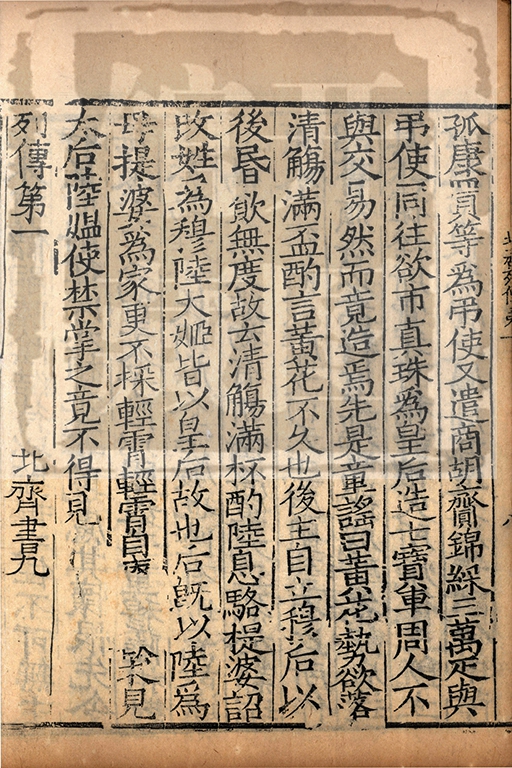 孤康買等為弔使又遣商胡齎錦綵三萬疋與
弔使同往欲市真珠為皇后造七寶車周人不
與交易然而竟造焉先是童謠曰黃花勢欲落
清觴滿盃酌言黃花不久也後主自立穆后以
後昏飲無度故云清觴滿杯酌陸息駱提婆詔
改姓為穆陸大姬皆以皇后故也后既以陸為
母提婆為家更不採輕霄輕霄自見
太后陸媼使禁掌之竟不得見
列傳第一 北齊書九